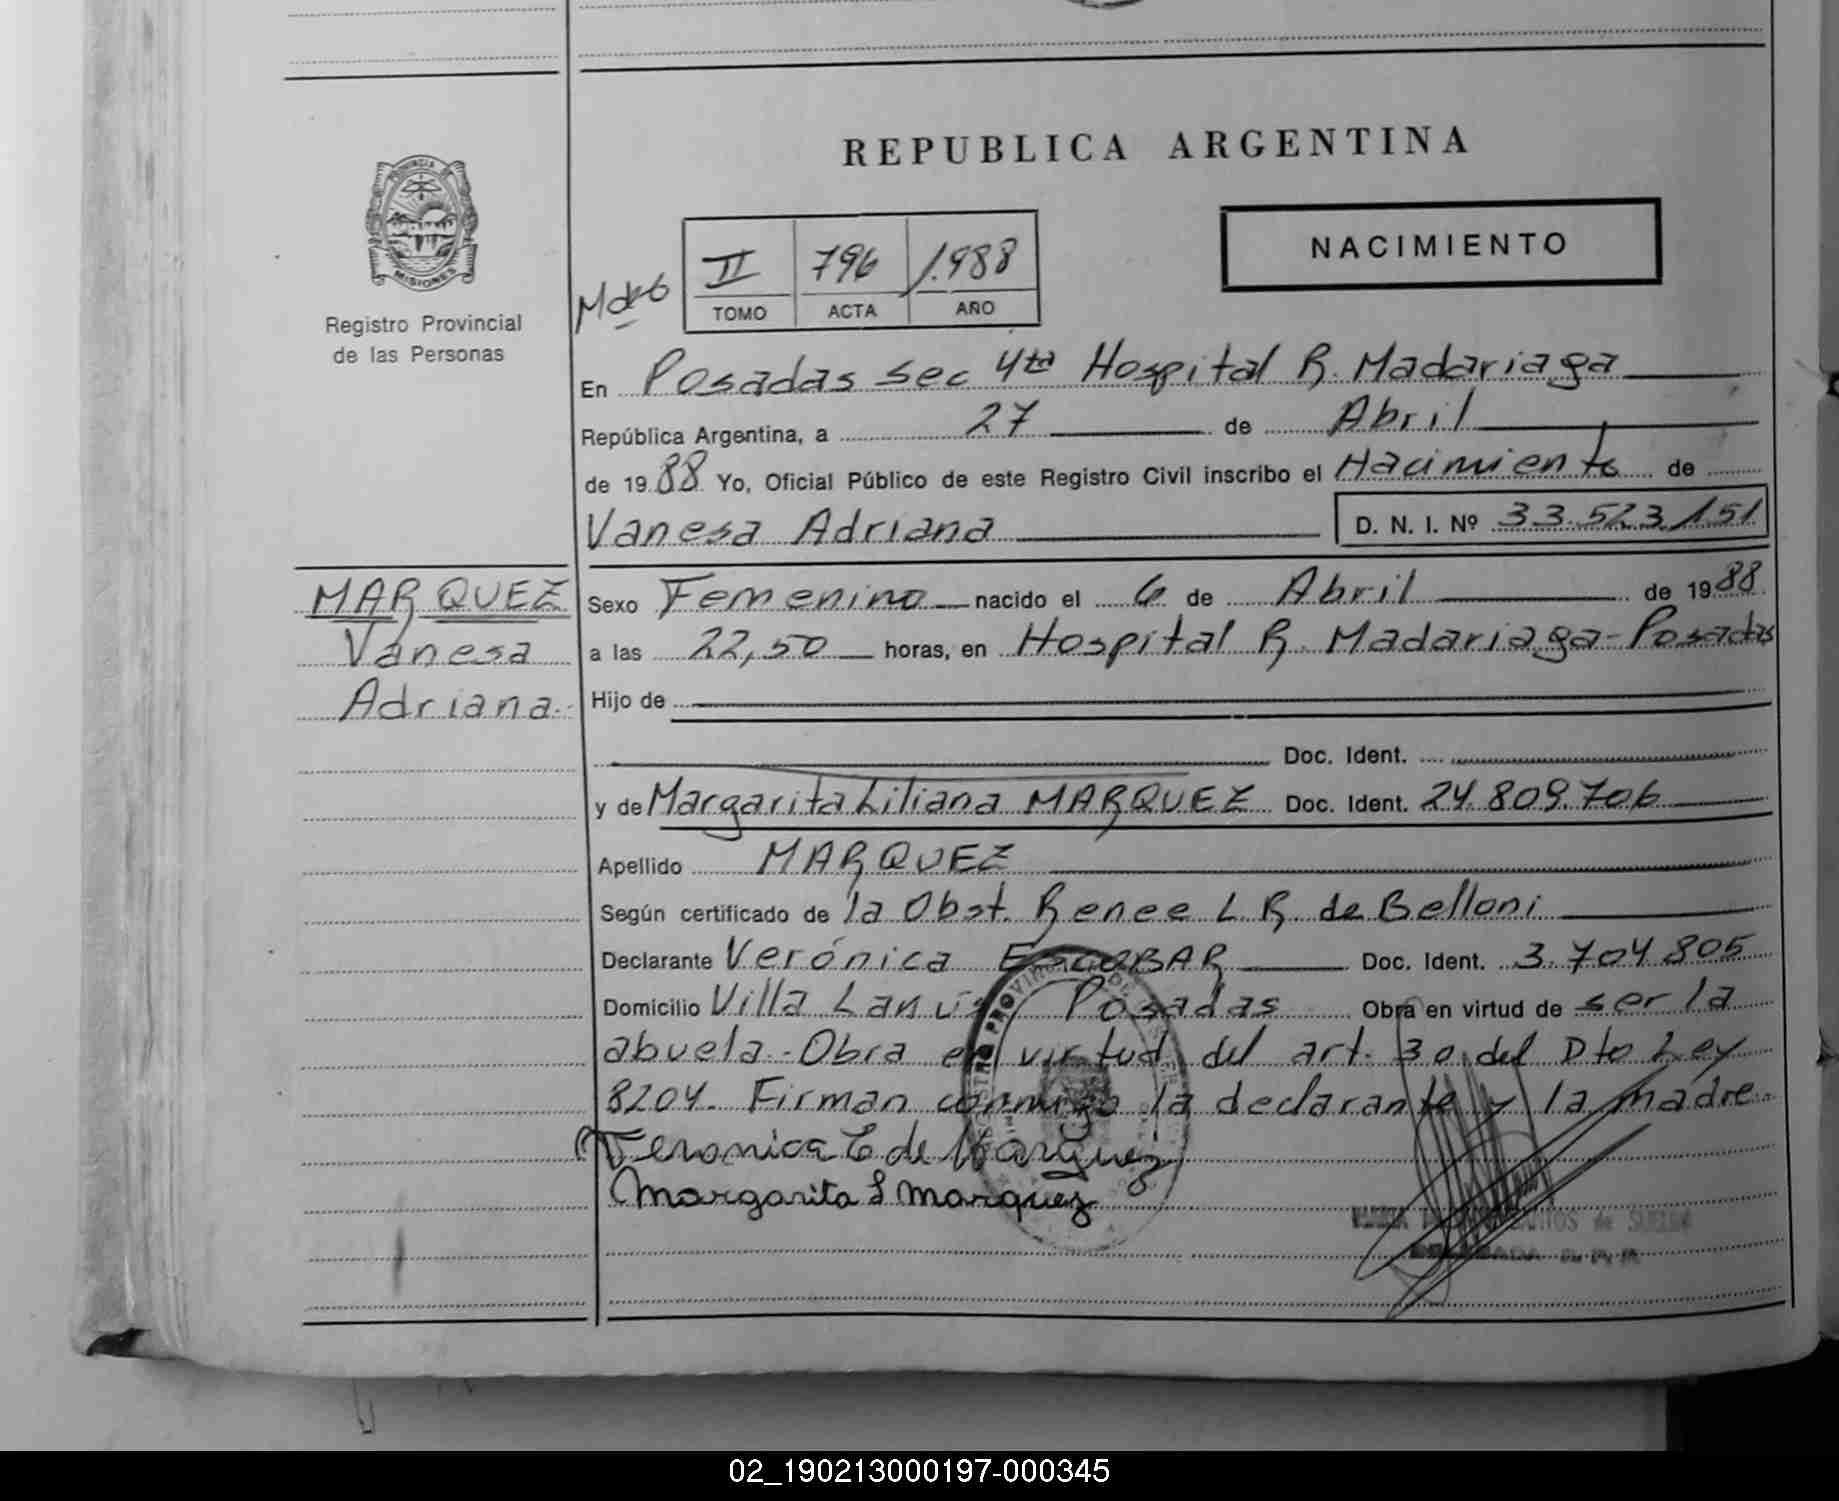 REPUBLICA ARGENTINA
PROVINCIA DE
MISIONES
Registro Provincial
de las Personas
NACIMIENTO
II 796 1.988
TOMO ACTA AÑO
En Posadas sec 4ta Hospital R. Madariaga
República Argentina, a 27 de Abril
de 1988 Yo, Oficial Público de este Registro Civil inscribo el Nacimiento de
Vanesa Adriana D. N. I. Nº 33.523.151
MARQUEZ
Vanesa
Adriana
Sexo Femenino nacido el 6 de Abril de 1988
a las 22,50 horas, en Hospital R. Madariaga - Posadas
Hijo de
Doc. Ident.
y de Margarita Liliana MARQUEZ Doc. Ident. 24.809.706
Apellido MARQUEZ
Según certificado de la Obst. Renee L. R. de Belloni
Declarante Verónica ESCOBAR Doc. Ident. 3.704.805
Domicilio Villa Lanús Posadas Obra en virtud de ser la
abuela - Obra en virtud del art. 30 del Dto Ley
8204. Firman conmigo la declarante y la madre
Veronica E de Marquez
Margarita L Marquez
02_190213000197-000345